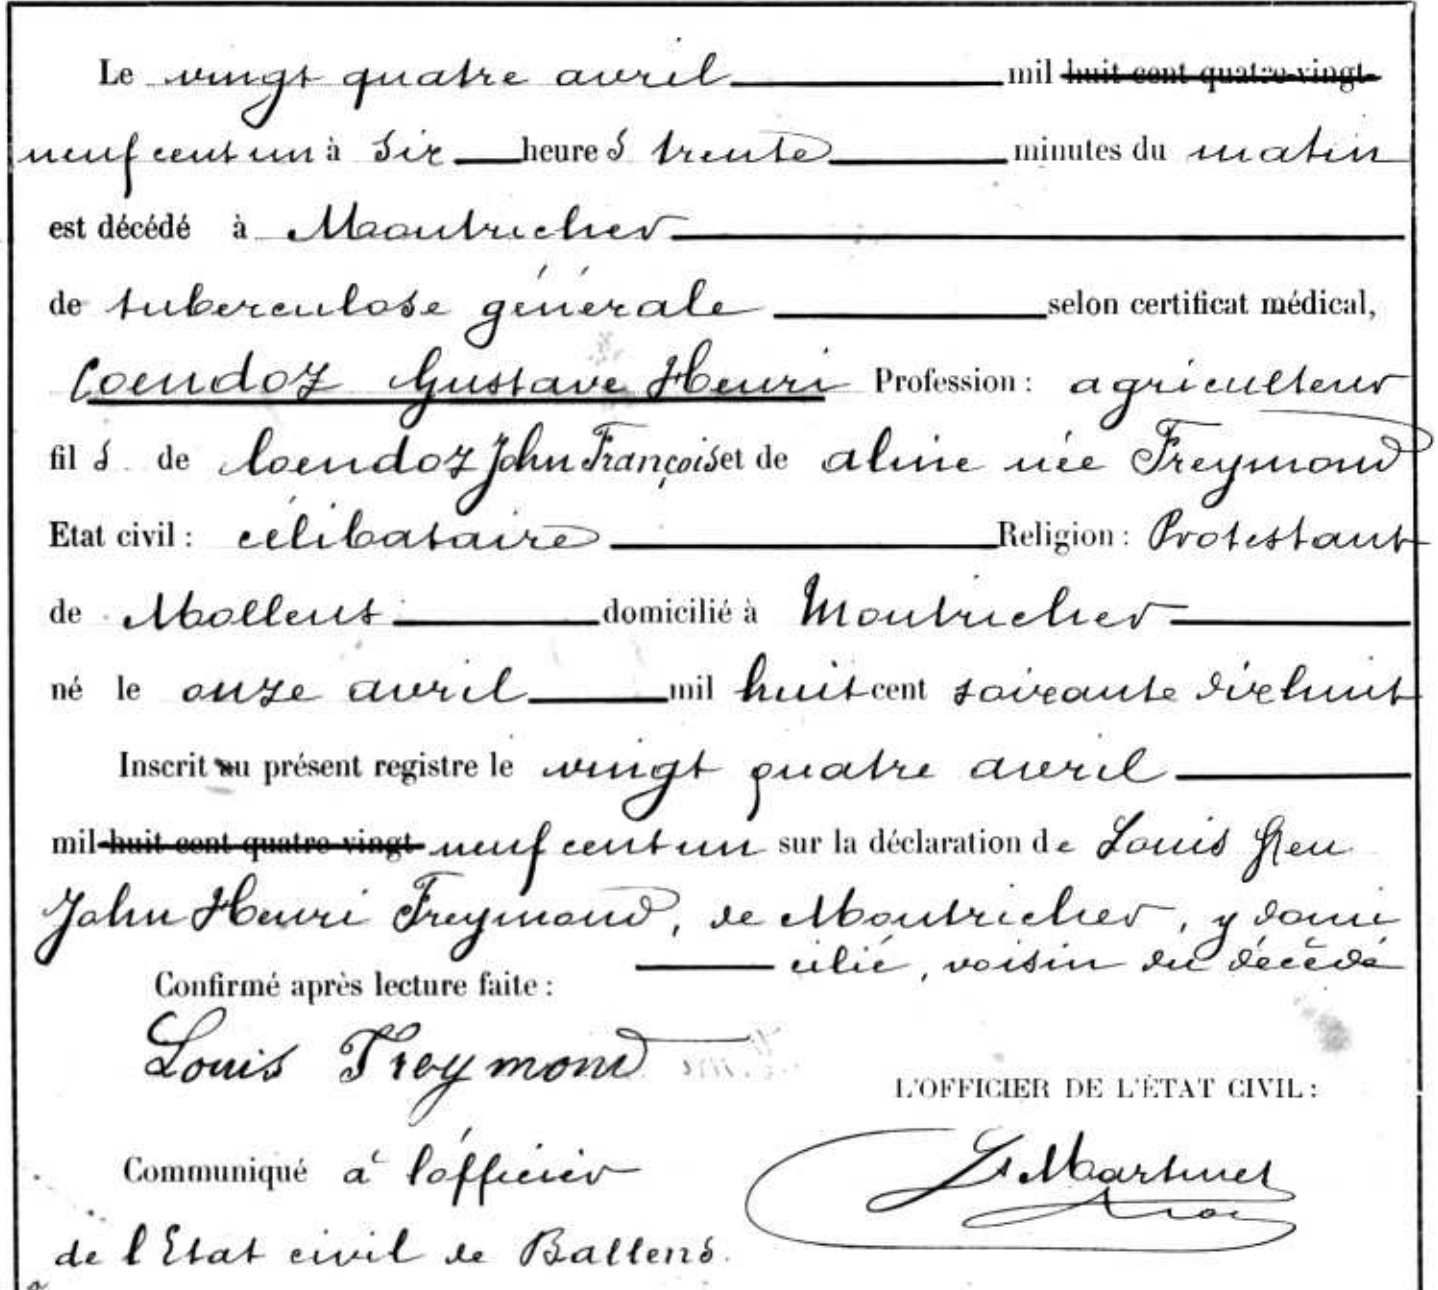 Le vingt quatre avril mil huit cent quatre-vingt-
neuf cent un à six heures trente minutes du matin
est décédé à Montricher
de tuberculose générale selon certificat médical,
Coendoz Gustave Henri Profession : agriculteur
fils de Coendoz John François et de Aline née Freymond
Etat civil : célibataire Religion : Protestant
de Mollens domicilié à Montricher
né le onze avril mil huit cent soixante dix huit
Inscrit au présent registre le vingt quatre avril
mil huit cent quatre-vingt neuf cent un sur la déclaration de Louis feu
John Henri Freymond, de Montricher, y domi
cilié, voisin du décédé
Confirmé après lecture faite :
Louis Freymond
L'OFFICIER DE L'ÉTAT CIVIL :
Ls Martinet
Communiqué à l'officier
de l'Etat civil de Ballens.